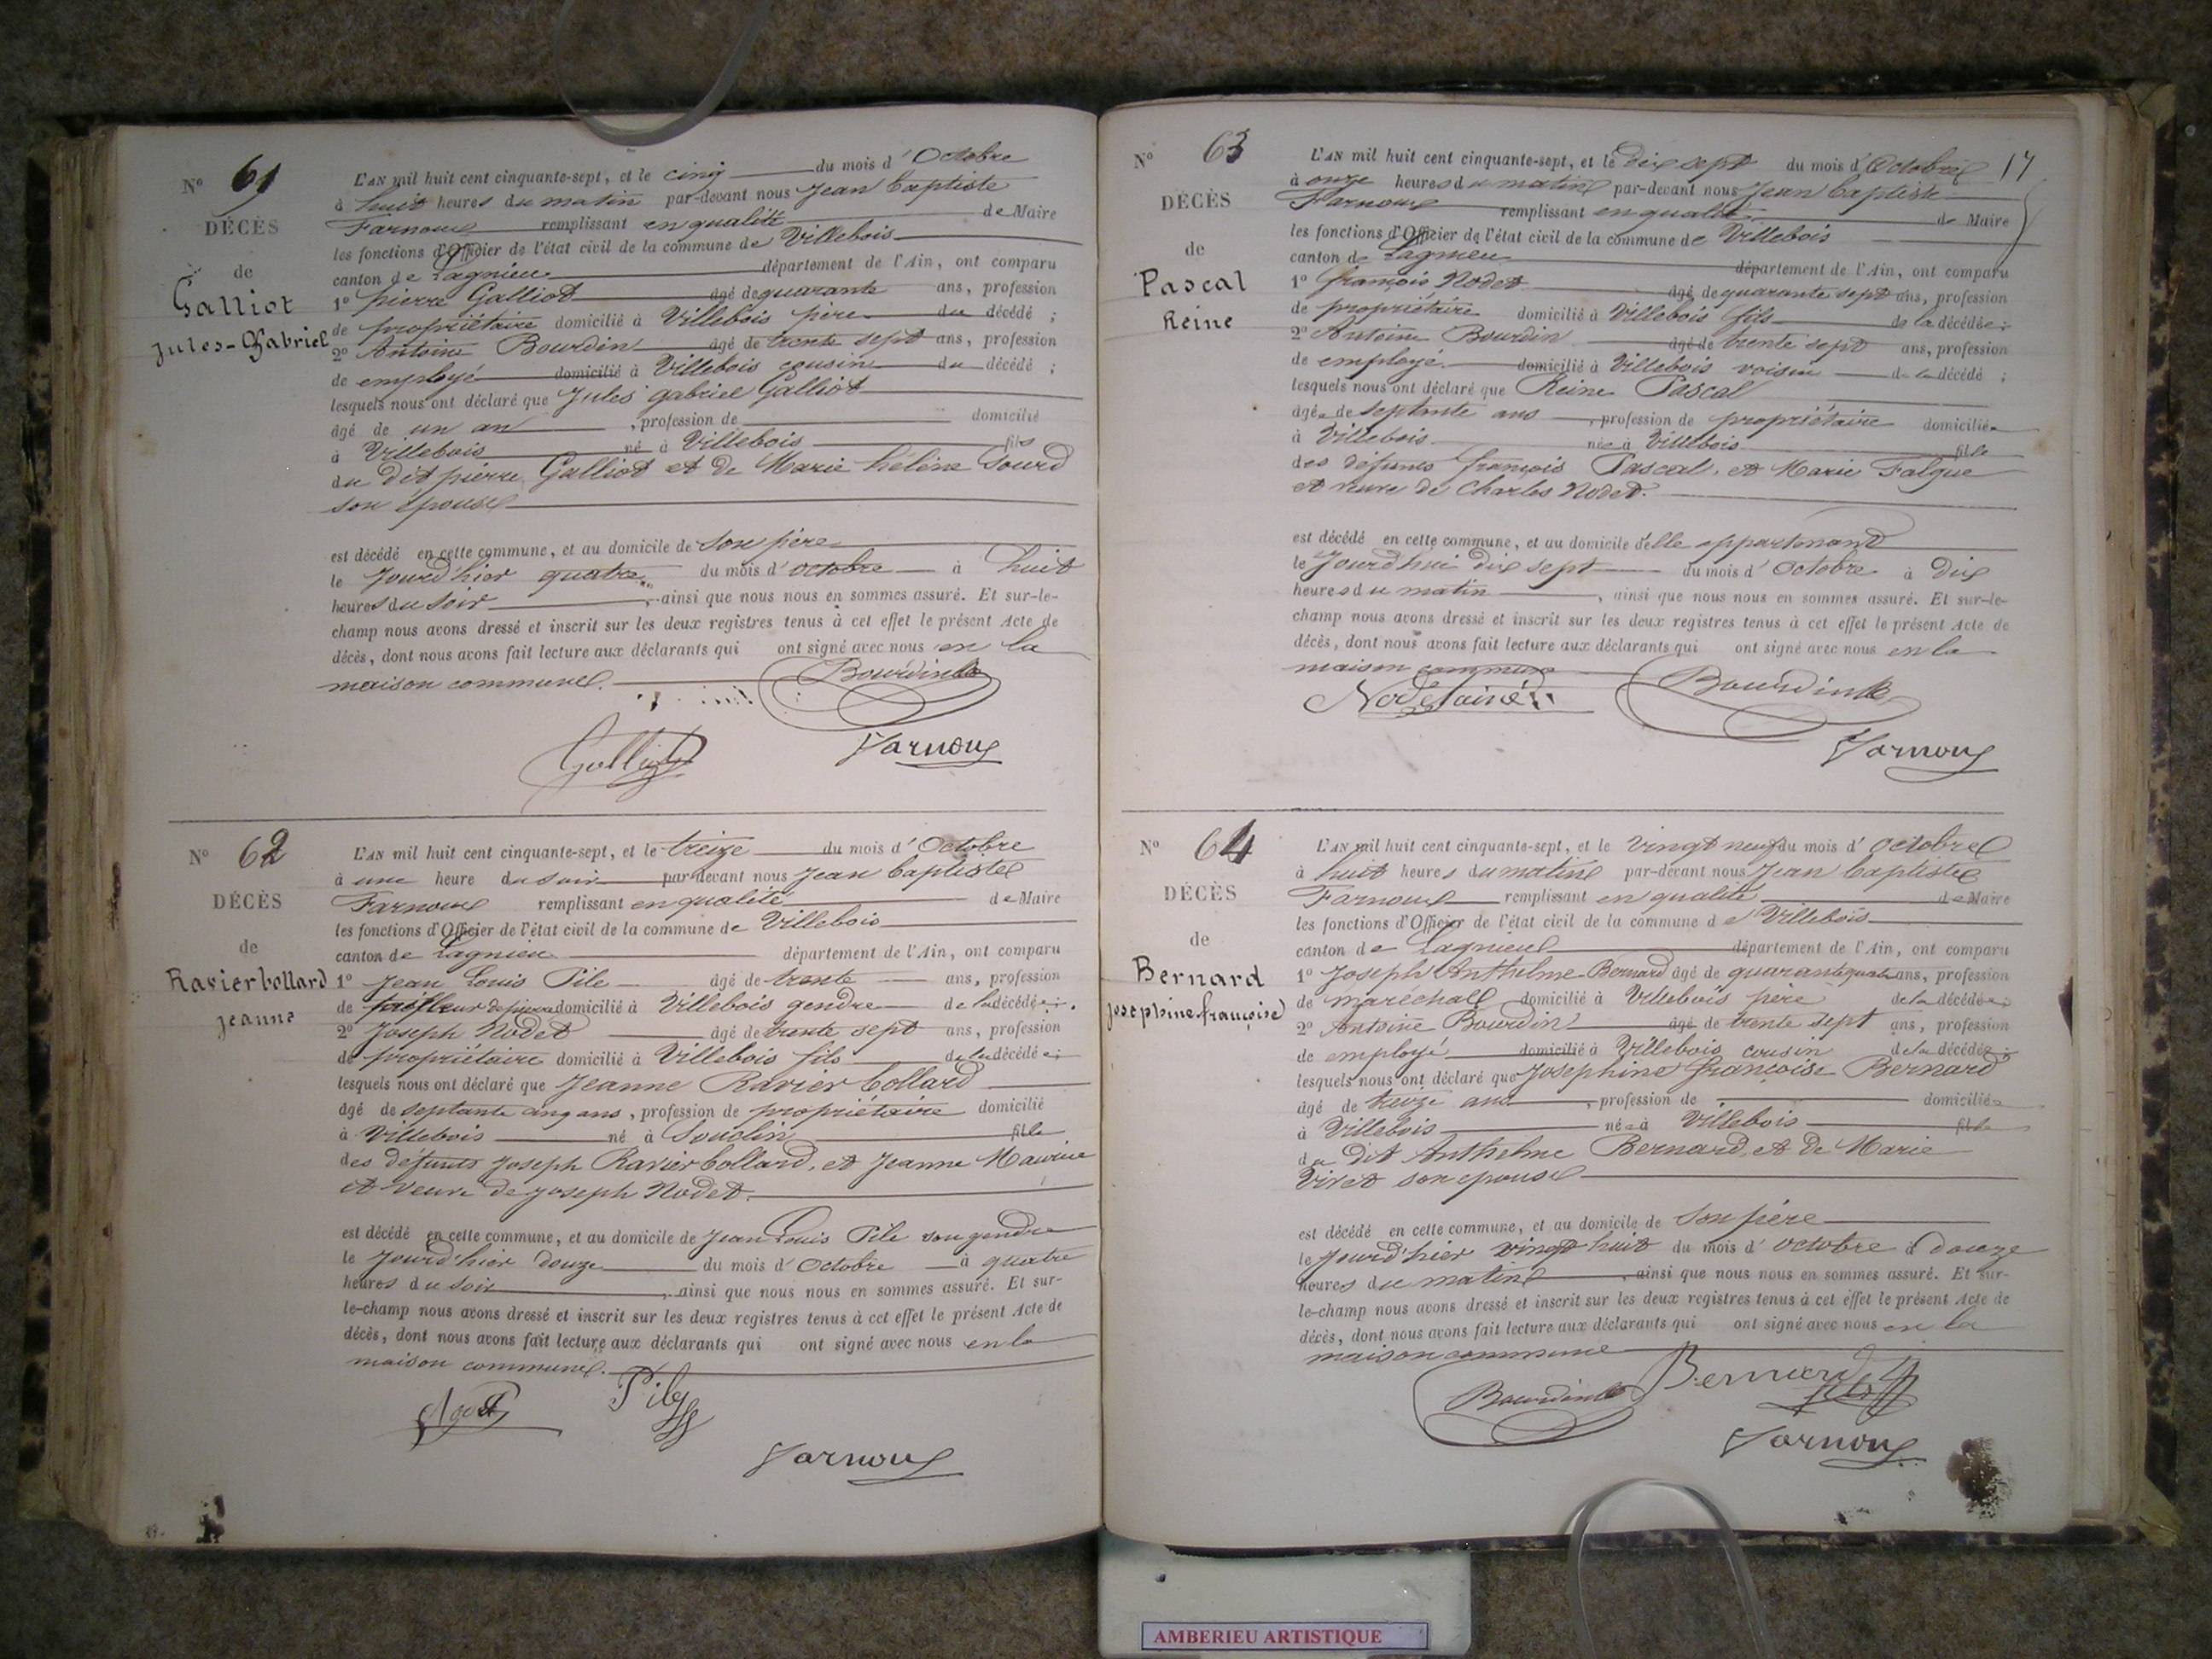 Nº 61
DÉCÈS
de
Galliot
Jules-Gabriel
L'AN mil huit cent cinquante-sept, et le cinq du mois d'Octobre
à huit heures du matin par-devant nous Jean Baptiste
Farnoux remplissant en qualité de Maire
les fonctions d'Officier de l'état civil de la commune de Villebois
canton de Lagnieu département de l'Ain, ont comparu
1º pierre Galliot âgé de quarante ans, profession
de propriétaire domicilié à Villebois père du décédé ;
2º Antoine Bourdin âgé de trente sept ans, profession
de employé domicilié à Villebois cousin du décédé ;
lesquels nous ont déclaré que Jules gabriel Galliot
âgé de un an , profession de domicilié
à Villebois né à Villebois fils
du dit pierre Galliot et de Marie hélène Gourd
son épouse
est décédé en cette commune, et au domicile de son père
le Jourd'hier quatre du mois d'octobre à huit
heures du soir , ainsi que nous nous en sommes assuré. Et sur-le-
champ nous avons dressé et inscrit sur les deux registres tenus à cet effet le présent Acte de
décès, dont nous avons fait lecture aux déclarants qui ont signé avec nous en la
maison commune.
Bourdin
Galliot
Farnoux
Nº 62
DÉCÈS
de
Ravier bollard
jeanne
L'AN mil huit cent cinquante-sept, et le treize du mois d'Octobre
à une heure du soir par-devant nous Jean baptiste
Farnoux remplissant en qualité de Maire
les fonctions d'Officier de l'état civil de la commune de Villebois
canton de Lagnieu département de l'Ain, ont comparu
1º Jean Louis Pile âgé de trente ans, profession
de tailleur de pierre domicilié à Villebois gendre de la décédée ;
2º Joseph Nodet âgé de trente sept ans, profession
de propriétaire domicilié à Villebois fils de la décédée ;
lesquels nous ont déclaré que Jeanne Ravier bollard
âgé de septante cinq ans, profession de propriétaire domicilié
à Villebois né à Souclin fille
des défunts Joseph Ravier bollard, et Jeanne
et veuve de Joseph Nodet.
est décédé en cette commune, et au domicile de Jean Louis Pile son gendre
le Jourd'hier douze du mois d'Octobre à quatre
heures du soir , ainsi que nous nous en sommes assuré. Et sur-
le-champ nous avons dressé et inscrit sur les deux registres tenus à cet effet le présent Acte de
décès, dont nous avons fait lecture aux déclarants qui ont signé avec nous en la
maison commune.
Nodet Pile
Farnoux
17
Nº 63
DÉCÈS
de
Pascal
Reine
L'AN mil huit cent cinquante-sept, et le dix sept du mois d'Octobre
à onze heures du matin par-devant nous Jean baptiste
Farnoux remplissant en qualité de Maire
les fonctions d'Officier de l'état civil de la commune de Villebois
canton de Lagnieu département de l'Ain, ont comparu
1º françois Nodet âgé de quarante sept ans, profession
de propriétaire domicilié à Villebois fils de la décédée ;
2º Antoine Bourdin âgé de trente sept ans, profession
de employé domicilié à Villebois voisin de la décédé ;
lesquels nous ont déclaré que Reine Pascal
âgée de septante ans , profession de propriétaire domiciliée
à Villebois née à Villebois fille
des défunts françois Pascal, et Marie Falque
et veuve de Charles Nodet.
est décédé en cette commune, et au domicile d'elle appartenant
le Jourd'hui dix sept du mois d'Octobre à dix
heures du matin , ainsi que nous nous en sommes assuré. Et sur-le-
champ nous avons dressé et inscrit sur les deux registres tenus à cet effet le présent Acte de
décès, dont nous avons fait lecture aux déclarants qui ont signé avec nous en la
maison commune
Nodet ainé Bourdin
Farnoux
Nº 64
DÉCÈS
de
Bernard
josephine françoise
L'AN mil huit cent cinquante-sept, et le vingt neuf du mois d'octobre
à huit heures du matin par-devant nous Jean baptiste
Farnoux remplissant en qualité de Maire
les fonctions d'Officier de l'état civil de la commune de Villebois
canton de Lagnieu département de l'Ain, ont comparu
1º Joseph Anthelme Bernard âgé de quarante quatre ans, profession
de maréchal domicilié à Villebois père de la décédée ;
2º Antoine Bourdin âgé de trente sept ans, profession
de employé domicilié à Villebois cousin de la décédée ;
lesquels nous ont déclaré que Josephine françoise Bernard
âgé de treize ans , profession de domiciliée
à Villebois née à Villebois fille
du dit Anthelme Bernard, et de Marie
Viret son epouse
est décédé en cette commune, et au domicile de son père
le Jourd'hier vingt huit du mois d'octobre à douze
heures du matin , ainsi que nous nous en sommes assuré. Et sur-
le-champ nous avons dressé et inscrit sur les deux registres tenus à cet effet le présent Acte de
décès, dont nous avons fait lecture aux déclarants qui ont signé avec nous en la
maison commune
Bourdin Bernard
Farnoux
AMBERIEU ARTISTIQUE